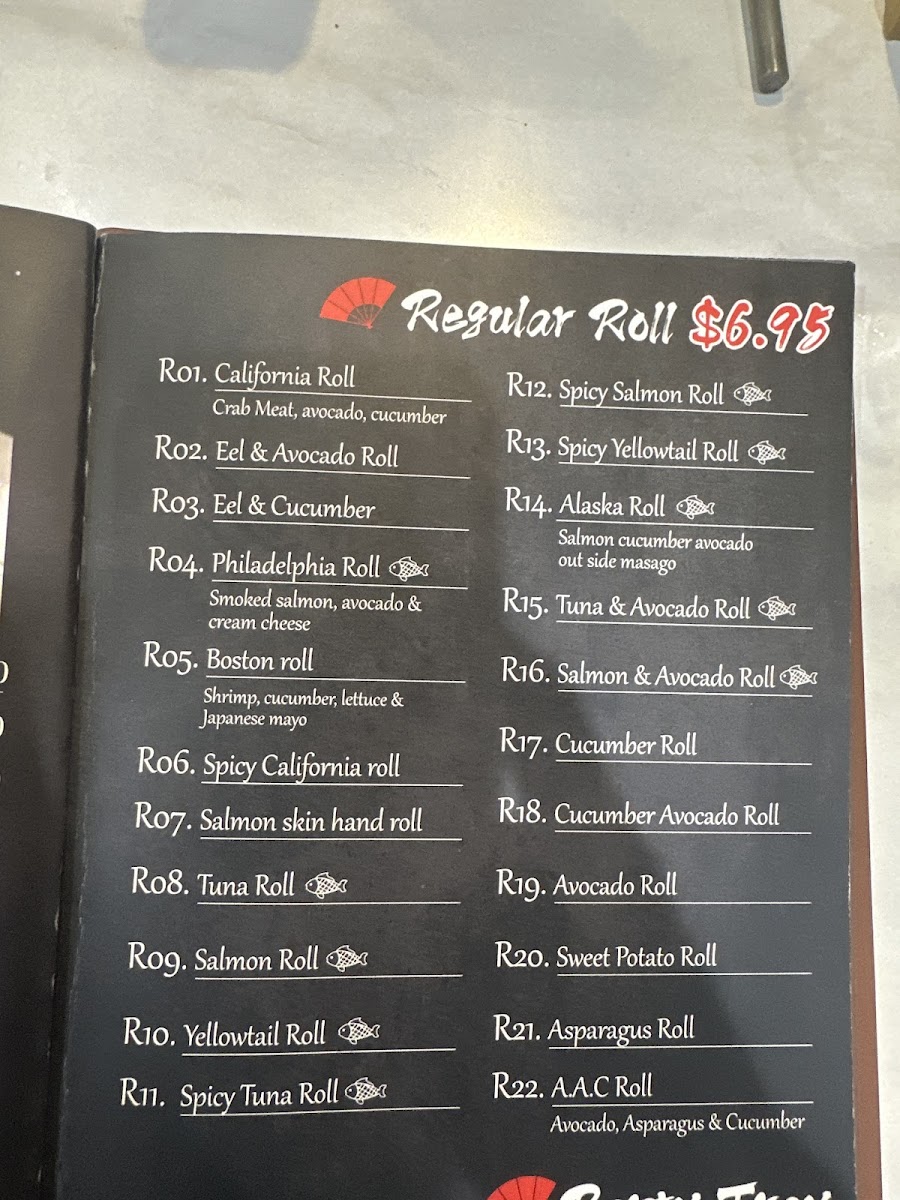 Regular Roll $6.95
R01. California Roll
Crab Meat, avocado, cucumber
R02. Eel & Avocado Roll
R03. Eel & Cucumber
R04. Philadelphia Roll
Smoked salmon, avocado &
cream cheese
R05. Boston roll
Shrimp, cucumber, lettuce &
Japanese mayo
R06. Spicy California roll
R07. Salmon skin hand roll
R08. Tuna Roll
R09. Salmon Roll
R10. Yellowtail Roll
R11. Spicy Tuna Roll
R12. Spicy Salmon Roll
R13. Spicy Yellowtail Roll
R14. Alaska Roll
Salmon cucumber avocado
out side masago
R15. Tuna & Avocado Roll
R16. Salmon & Avocado Roll
R17. Cucumber Roll
R18. Cucumber Avocado Roll
R19. Avocado Roll
R20. Sweet Potato Roll
R21. Asparagus Roll
R22. A.A.C Roll
Avocado, Asparagus & Cucumber